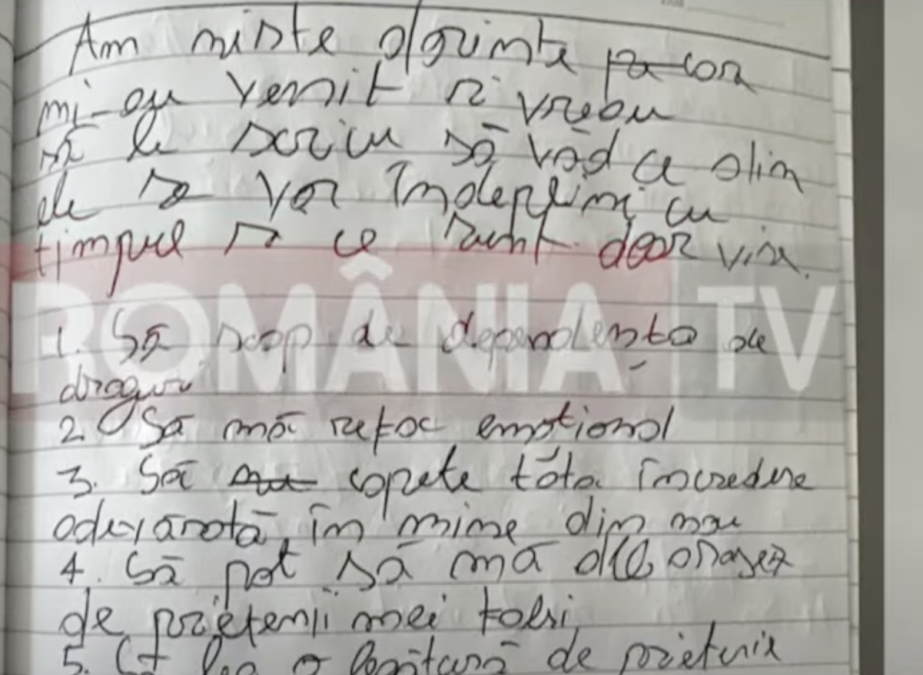 Am niste dorinte pe care
mi-au venit si vreau
să le scriu să văd ce din
ele se vor îndeplini cu
timpul si ce sunt doar vise.
ROMÂNIA TV
1. Să scap de dependenta de
droguri
2. Să mă refac emotional
3. Să capete tata încredere
adevarată în mine din nou
4. Să pot să mă
de prietenii mei falsi
5. o legătură de prietenie